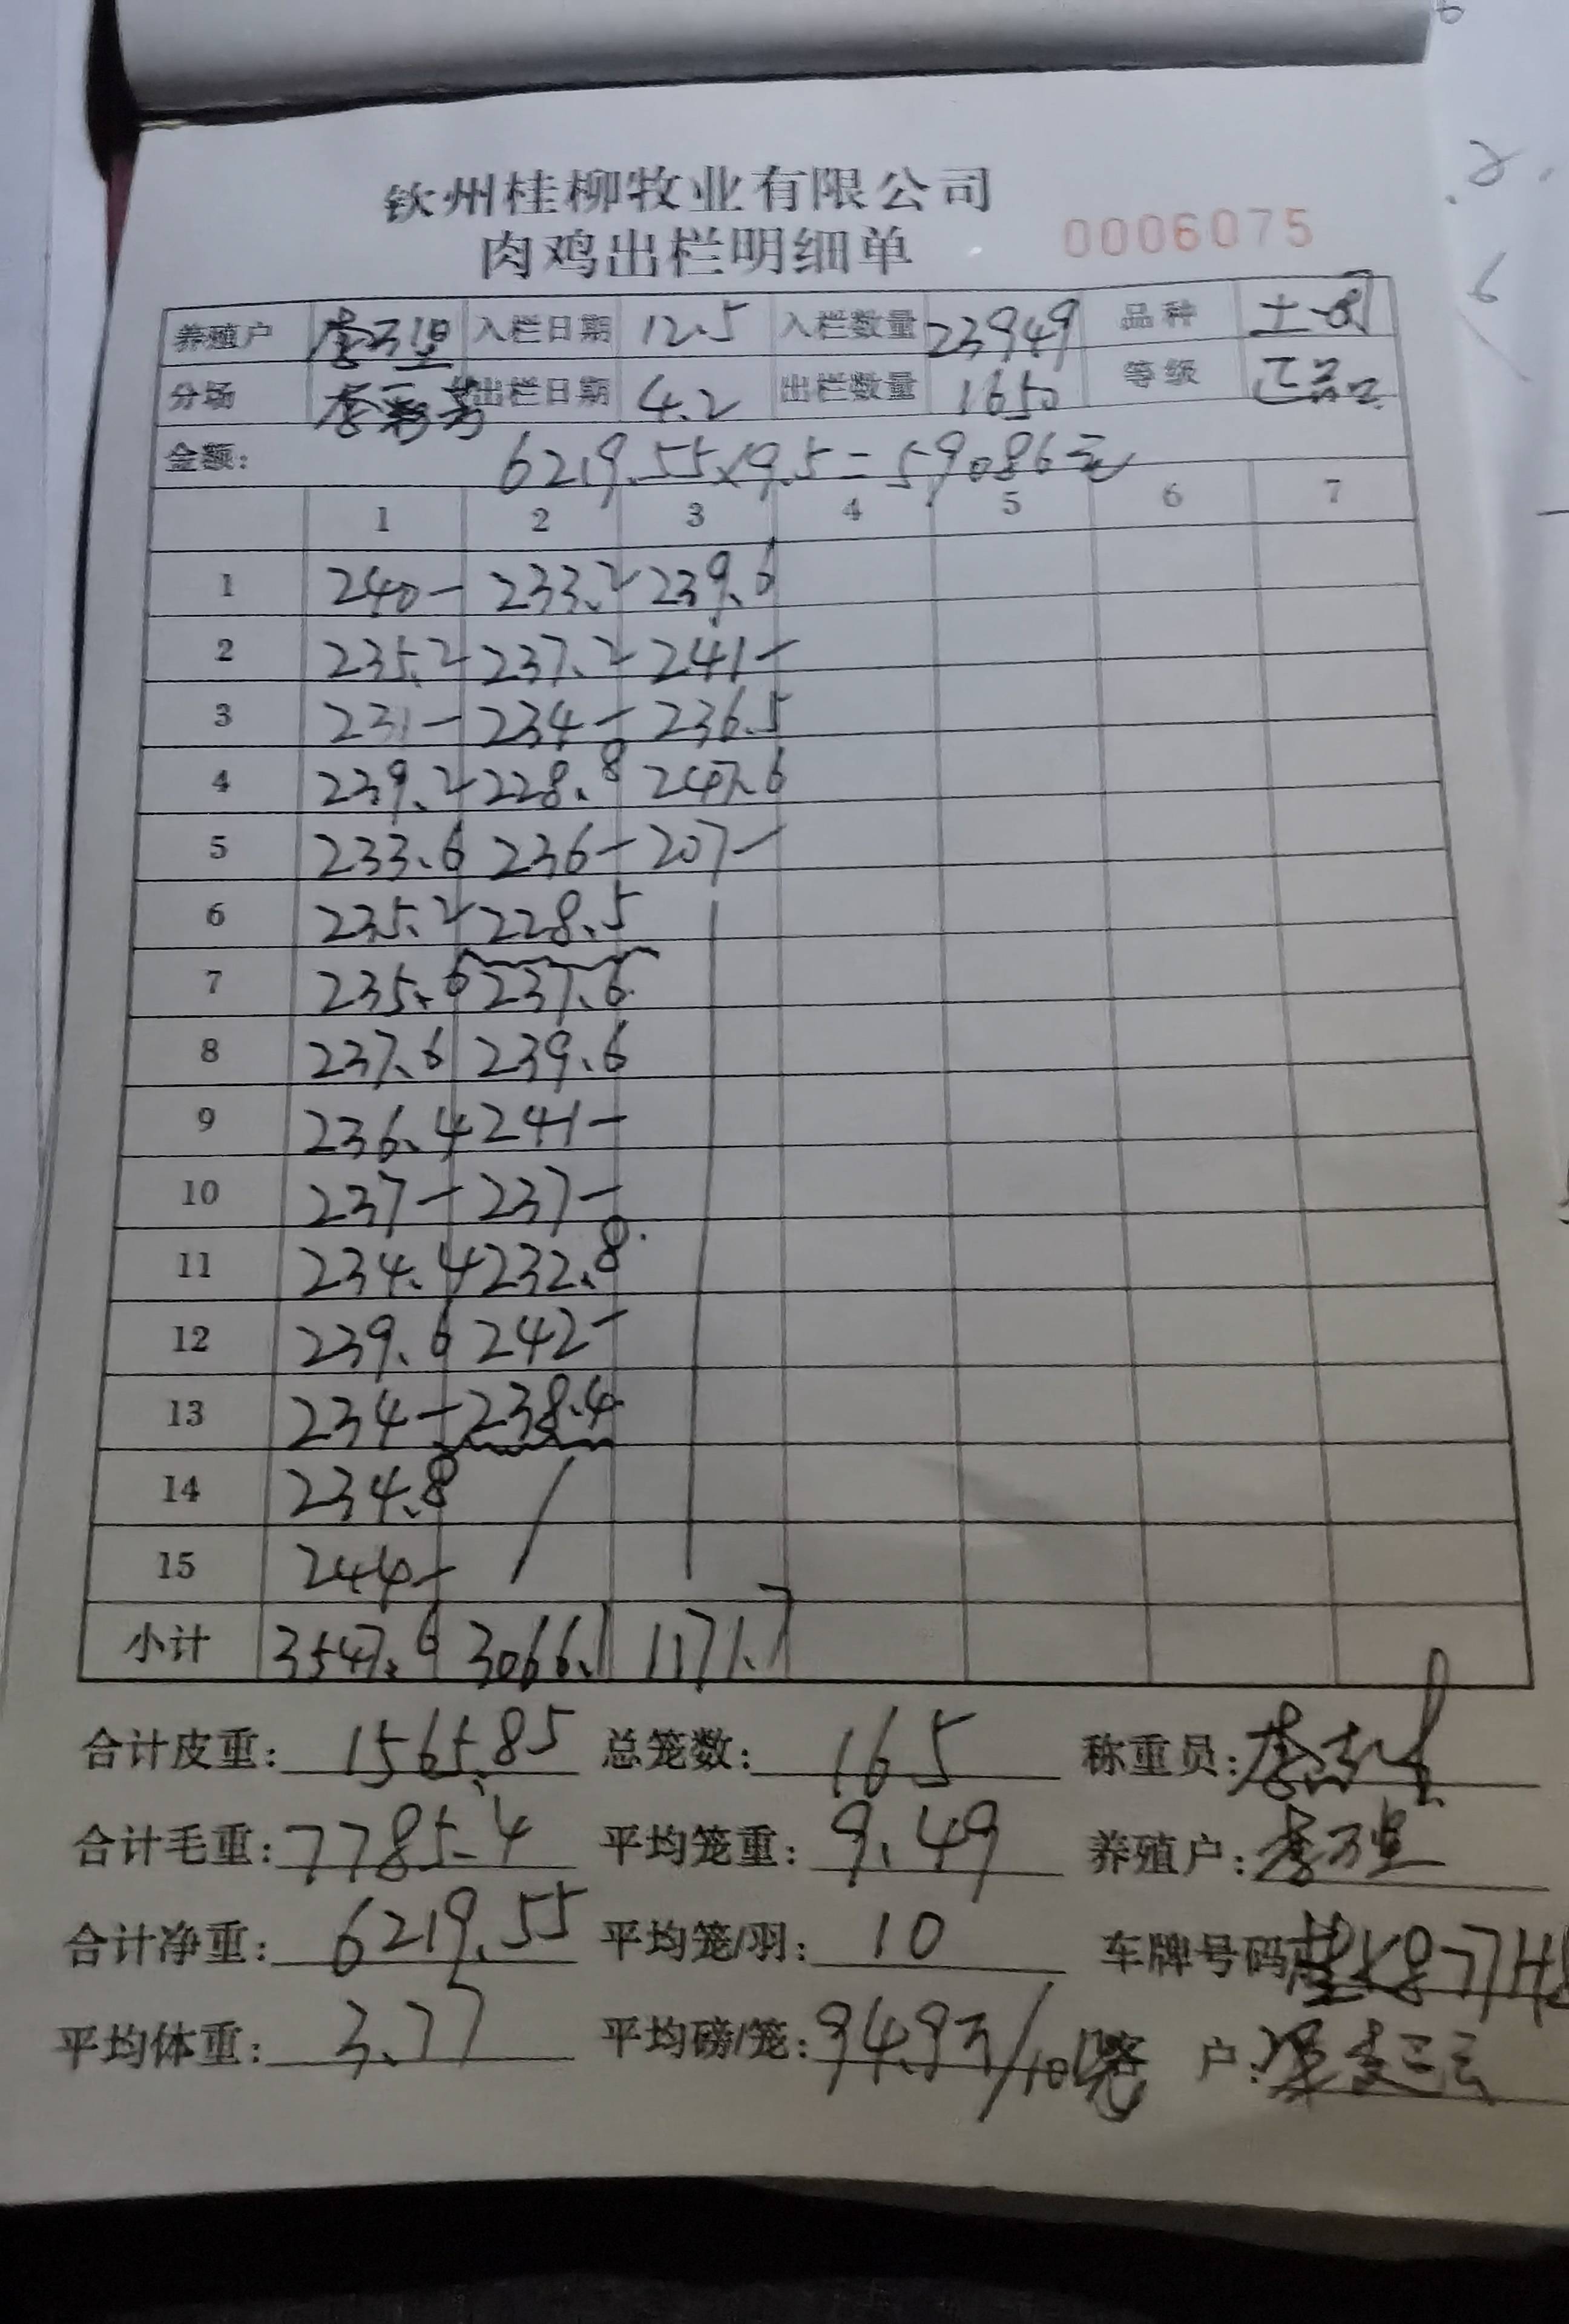 钦州桂柳牧业有限公司
肉鸡出栏明细单 0006075
养殖户 入栏日期 12.5 入栏数量 23949 品种 土
分场 出栏日期 4.2 出栏数量 1650 等级 正品
金额: 6219.55×9.5=59086元
1 2 3 4 5 6 7
1 240— 233.2 239.6
2 235.2 237.2 241—
3 231— 234— 236.5
4 239.2 228.8 247.6
5 233.6 236— 207—
6 235.2 228.5
7 235.6 237.6
8 237.6 239.6
9 236.4 241—
10 237— 237—
11 234.4 232.8
12 239.6 242—
13 234— 238.4
14 234.8
15 244—
小计 3547.6 3066.1 1171.7
合计皮重: 1565.85 总笼数: 165 称重员:
合计毛重: 7785.4 平均笼重: 9.49 养殖户:
合计净重: 6219.55 平均笼/羽: 10 车牌号码
平均体重: 3.77 平均磅/笼: 94.9 客 户: